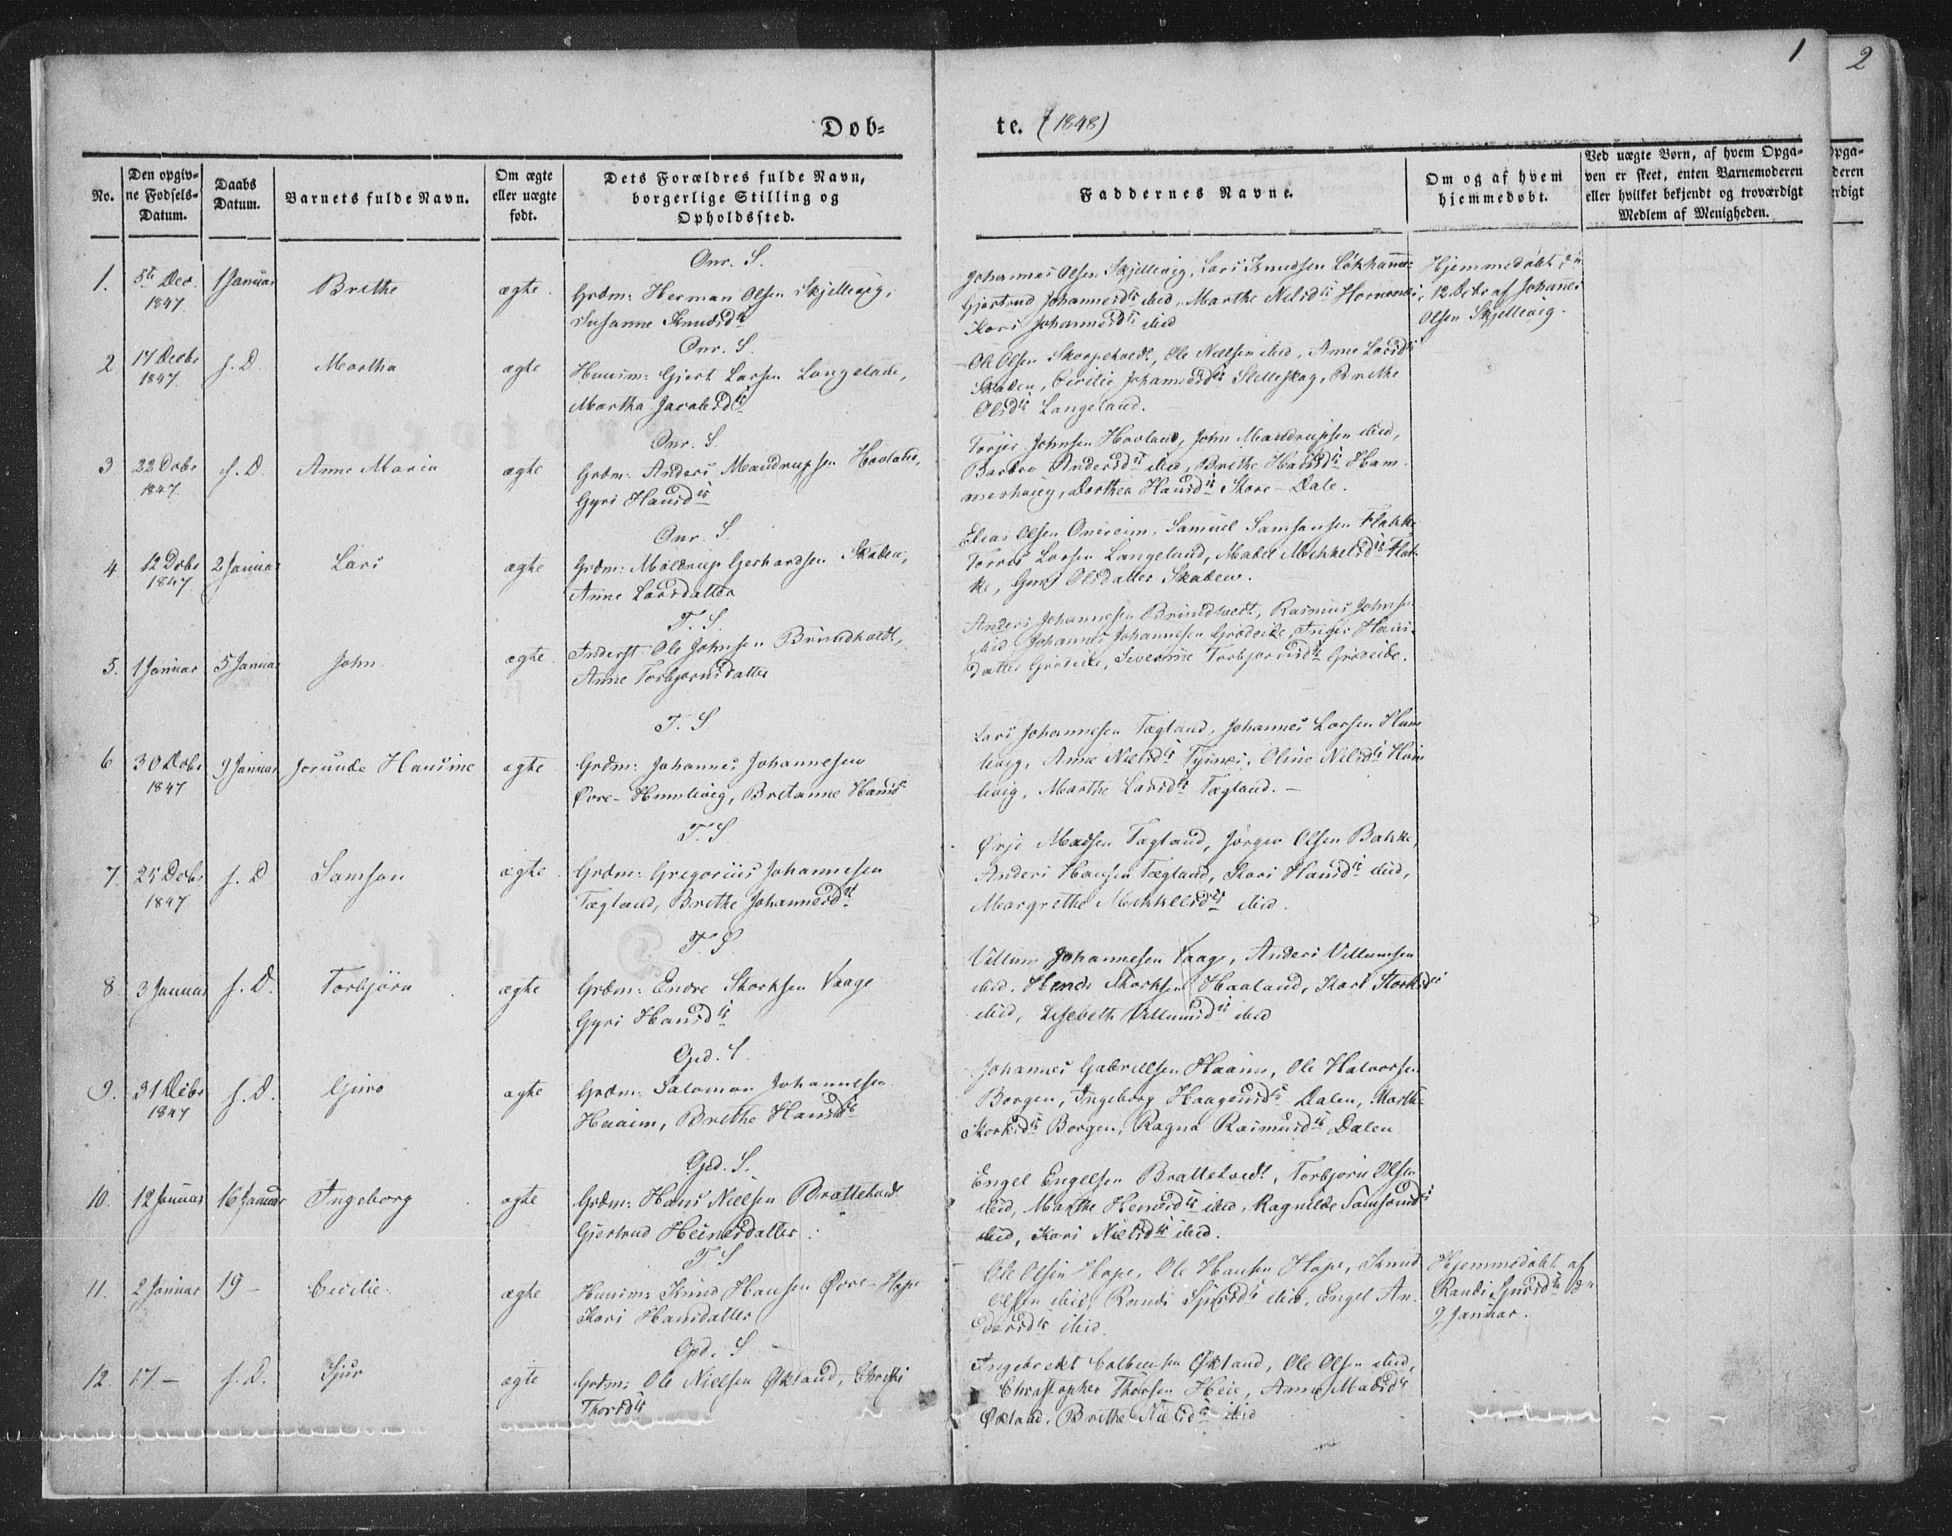 1
2
Døb=
te. (1848)
No.
Den opgiv-
ne Fødsels-
Datum.
Daabs
Datum.
Barnets fulde Navn.
Om ægte
eller uægte
født.
Dets Forældres fulde Navn,
borgerlige Stilling og
Opholdssted.
Faddernes Navne.
Om og af hvem
hjemmedøbt.
Ved uægte Børn, af hvem Opga-
ven er skeet, enten Barnemoderen
eller hvilket bekjendt og troværdigt
Medlem af Menigheden.
Opga-
deren
rdigt
Onr. S.
1. 5te Dec. 1 Januar Brethe ægte Grdm: Herman Olsen Skjellevig,
1847 Susanne Knudsdtr
Johannes Olsen Skjellevig, Lars Knudsen
Gjertrud Johannesdtr ibid, Marthe Nielsdtr
Kari Johannesdtr ibid
Hjemmedøbt
12 Decbr af Johannes
Olsen Skjellevig.
Onr. S.
2 17 Decbr f. D. Martha ægte Huusm: Gjert Larsen Langeland,
1847 Martha Jacobsdtr
Ole Olsen Skorpetvedt, Ole Nielsen ibid, Anne Larsdtr
Skaden, Cecilie Johannesdtr Stelleskog, Brethe
Olsdtr Langeland.
Onr. S.
3 22 Dcbr f. D. Anne Maria ægte Grdm: Anders Mandrupsen Hovland,
1847 Gyri Hansdtr
Torjer Johnsen Hovland, John Mandrupsen ibid,
Barbro Andersdtr ibid, Brethe Hansdtr Ham-
mershoug, Dorthea Hansdtr Store-Dale.
Onr. S.
4 12 Dcbr 2 Januar Lars ægte Grdm: Maldrup Gerhardsen Skaden,
1847 Anne Larsdatter
Elias Olsen Onereim, Samuel Samsonsen Flakke
Torres Larsen Langeland, Madel Mikkelsdtr Flak-
ke, Olsdatter Skaden.
T. S.
5. 1 Januar 5 Januar John ægte Inderst Ole Johnsen Brundtvedt,
Anne Torbjørnsdatter
Anders Johannesen Brundtvedt, Rasmus Johnsen
ibid Johannes Johannesen Grødeide, Inger Hans-
datter Grødeide, Severine Torbjørnsdtr Grødeide.
T. S
6 30 Dcbr 9 Januar Jorunde Hansine ægte Grdm: Johannes Johannesen
1847 Øvre-Humlevig, Britanne Hansdtr
Lars Johannesen Tægland, Johannes Larsen Hum-
levig, Anne Nielsdtr Tysnes, Oline Nielsdtr Hum-
levig, Marthe Larsdtr Tægland. –
T. S
7. 25 Dcbr f. D Samson ægte Grdm: Gregorius Johannesen
1847 Tægland, Brethe Johannesdtr
Ørje Madsen Tægland, Jørgen Olsen Bakke,
Anders Hansen Tægland, Kari Hansdtr ibid,
Margrethe Mikkelsdtr ibid.
T. S
8 3 Januar f. D. Torbjørn ægte Grdm: Endre Storksen Vaage
Gyri Hansdtr
Villum Johannesen Vaage, Anders Villumsen
ibid. Storksen Haaland, Kari Storksdtr
ibid, Lisebeth Villumsdtr ibid
Gjd. S.
9. 31 Dcbr f. D. Guro ægte Grdm: Salomon Johannesen
1847 Haaim, Brethe Hansdtr
Johannes Gabrielsen Haaim, Ole Halvorsen
Borgen, Ingeborg Haagensdtr Dalen, Marthe
Storksdtr Borgen, Ragna Rasmusdtr Dalen
Gjd. S.
10. 12 Januar 16 Januar Ingeborg ægte Grdm: Hans Nielsen Brattetvedt
Gjertrud Heinesdatter.
Engel Engelsen Brattetvedt, Torbjørn Olsen
ibid, Marthe ibid, Ragnilde Samsonsdtr
ibid, Kari Nielsdtr ibid.
T. S
11. 2 Januar 19 – Cecilie ægte Huusm: Knud Hansen Øvre-Hope
Kari Hansdatter
Ole Olsen Hope, Ole Hansen Hope, Knud
Olsen ibid, Randi Sjursdtr ibid, Engel An-
dersdtr ibid.
Hjemmedøbt af
Randi Sjursdtr
9 Januar.
Gjd. S
12. 17 – f. D. Sjur ægte Grdm: Ole Nielsen Økland, Christi
Thorsdtr
Ingebrekt Colbensen Økland, Ole Olsen ibid,
Christopher Thorsen Heie, Anne Madsdtr
Økland, Brethe Nielsdtr ibid